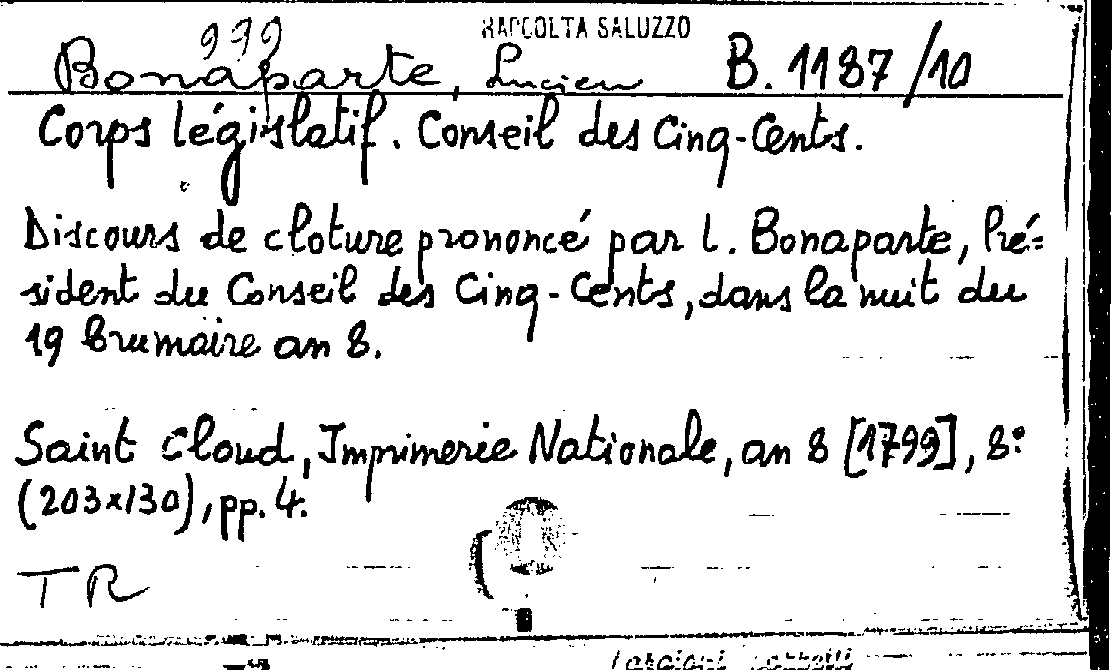 999
RACCOLTA SALUZZO
Bonaparte, Lucien B. 1187/10
Corps législatif. Conseil des Cinq-Cents.
Discours de cloture prononcé par L. Bonaparte, Pré=
sident du Conseil des Cinq-Cents, dans la nuit du
19 Brumaire an 8.
Saint Cloud, Imprimerie Nationale, an 8 [1799], 8°
(203x130), pp. 4.
TR